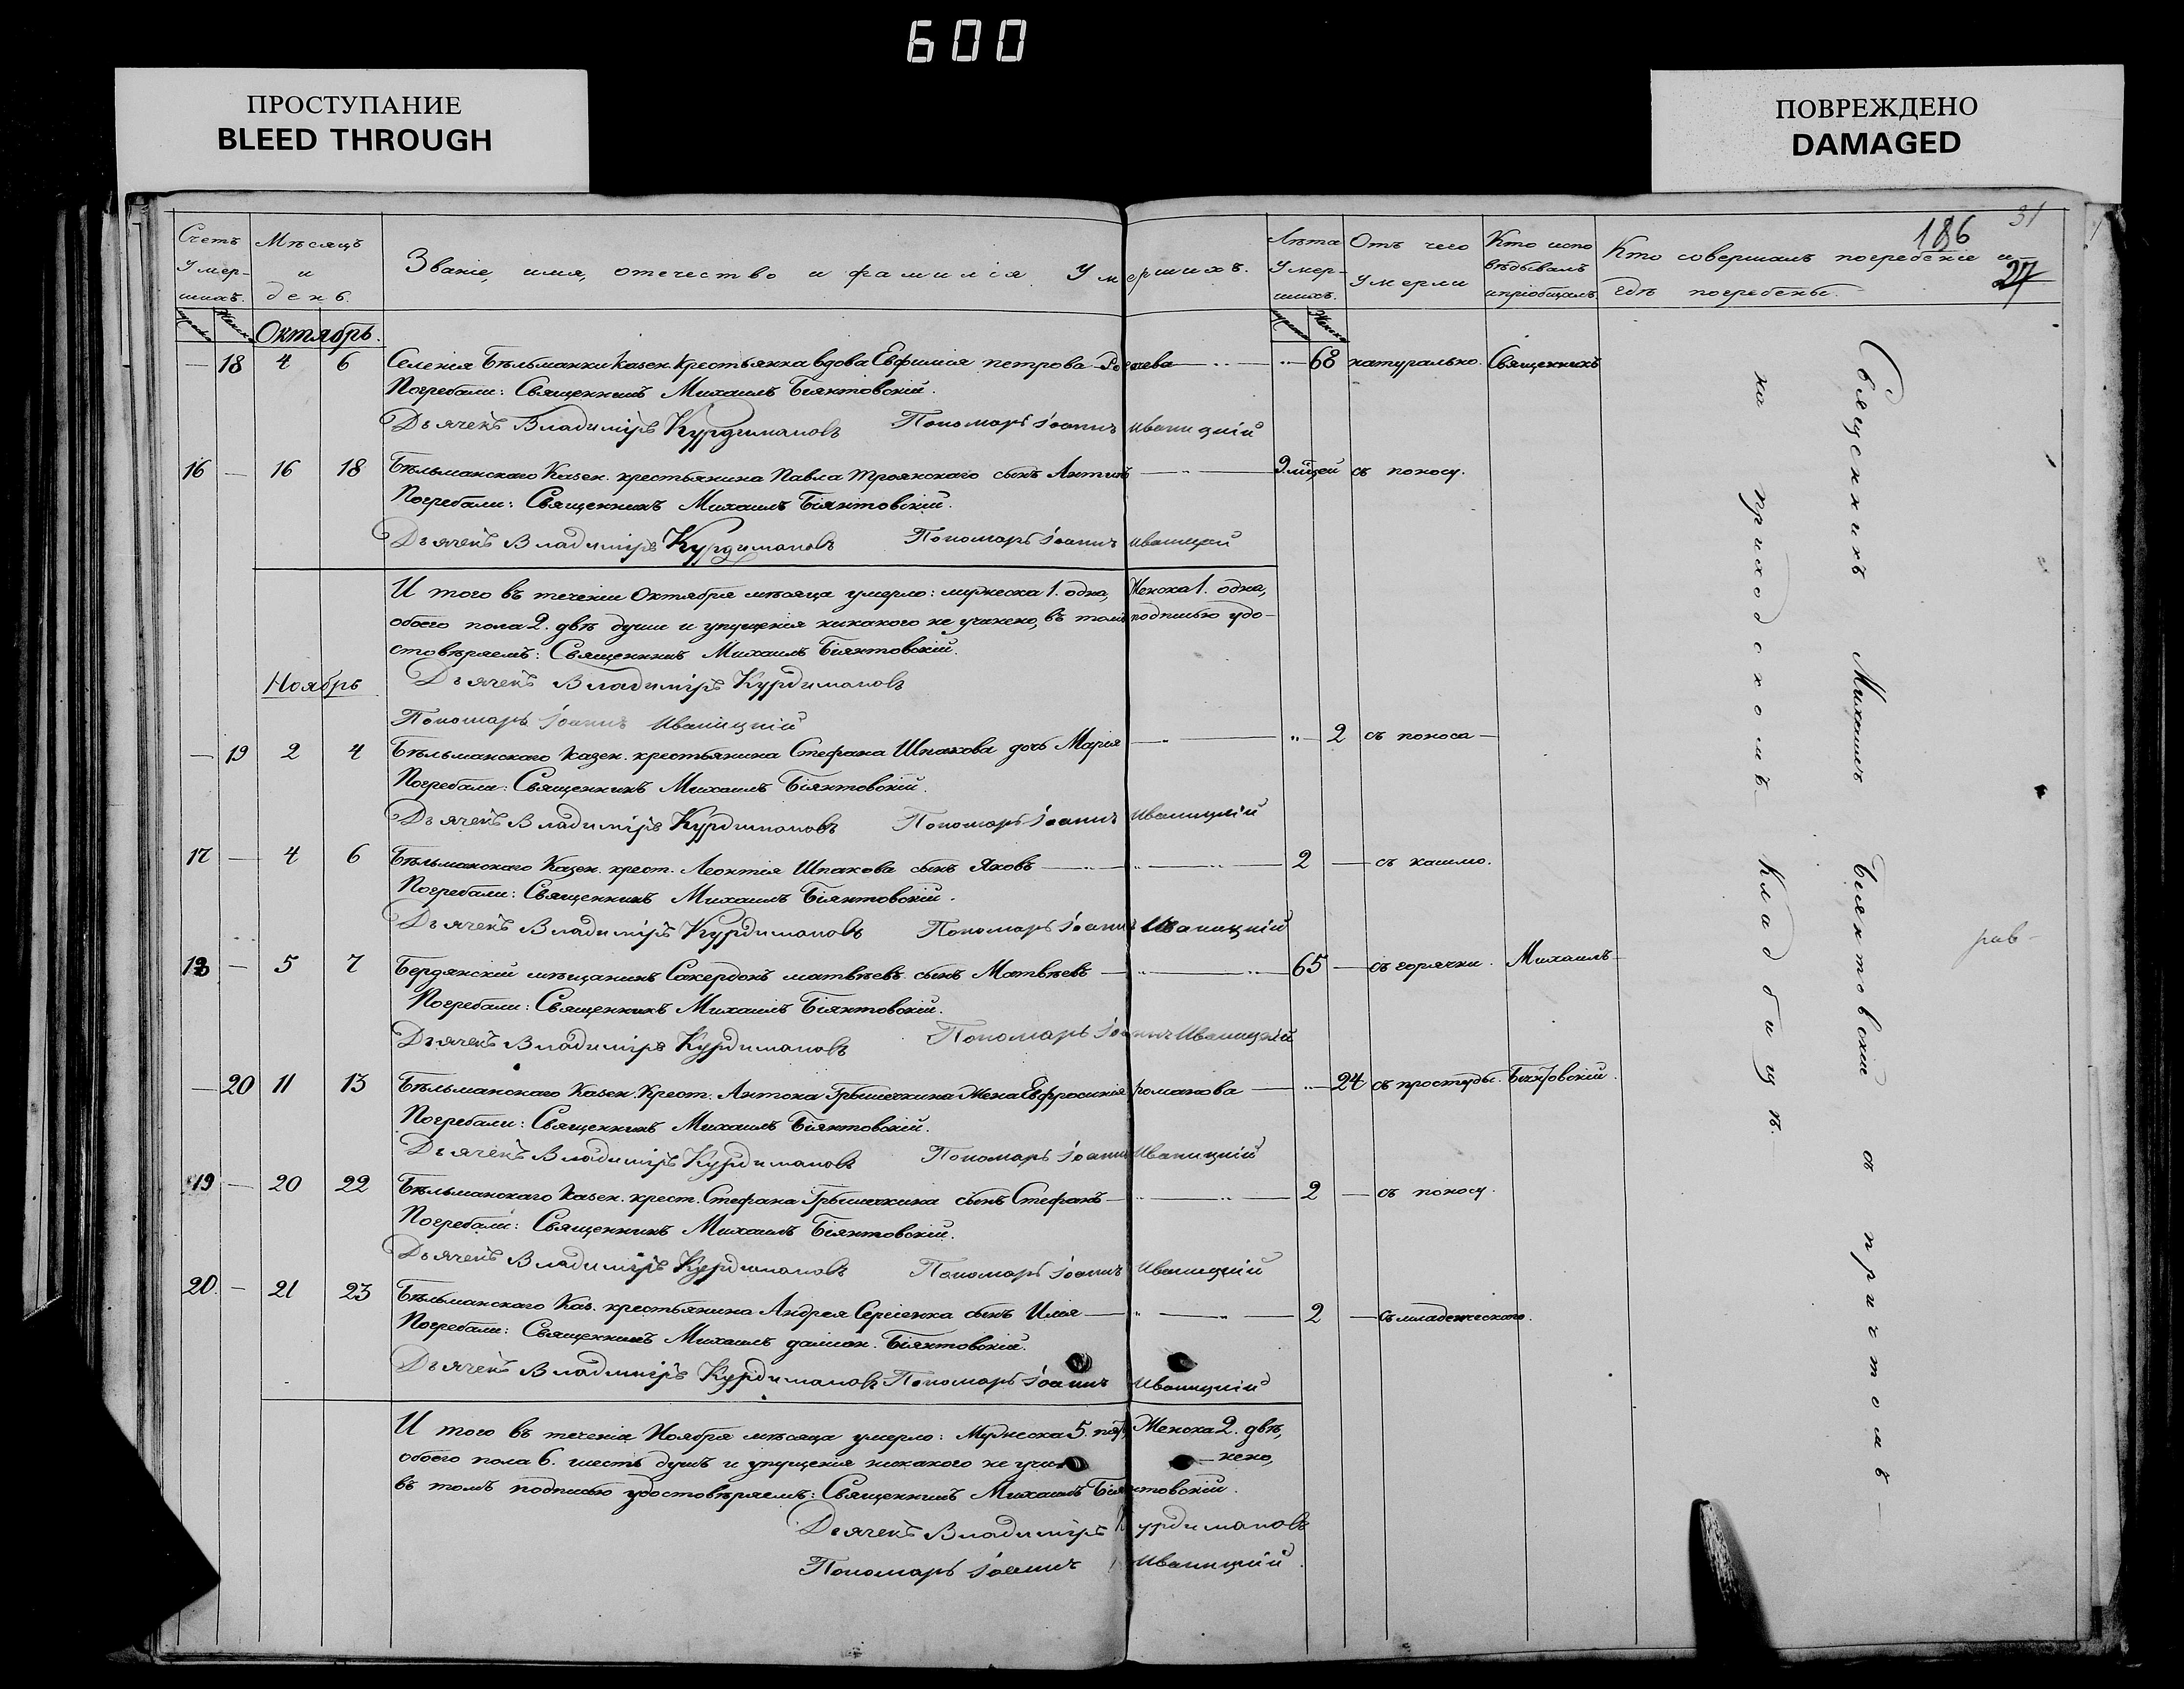 600
ПРОСТУПАНИЕ
BLEED THROUGH
ПОВРЕЖДЕНО
DAMAGED
31
186
27
Счетъ Умер-шихъ. Мѣсяцъ и день. Званіе, имя, отечество и фамилія Умершихъ. Лѣта Умер-шихъ. Отъ чего Умерли Кто испо вѣдывалъ и пріобщалъ. Кто совершалъ погребеніе и гдѣ погребены.
Октябрь.
— 18 4 6 Селенія Бѣльманки Казен. Крестьянка вдова Евфимія петрова — „ — 68 натурально. Священникъ
Погребали: Священникъ Михаилъ Біянтовскій.
Дьячекъ Владиміръ Курдимановъ Пономарь Іоаннъ Иваницкій
16 — 16 18 Бѣльманскаго Казен. крестьянина Павла Троянскаго сынъ — „ — 9 съ поносу.
Погребали: Священникъ Михаилъ Біянтовскій.
Дьячекъ Владиміръ Курдимановъ Пономарь Іоаннъ Иваницкій
И того въ теченіи Октября мѣсяца умерло: мужеска 1. одна, Женска 1. одна,
обоего пола 2. двѣ души и упущенія никакого не учинено, въ томъ подписью удо-
стовѣряемъ: Священникъ Михаилъ Біянтовскій.
Ноябрь Дьячекъ Владиміръ Курдимановъ
Пономарь Іоаннъ Иваницкій
— 19 2 4 Бѣльманскаго казен. крестьянина Стефана Шпакова дочь Марія — „ — „ — 2 съ поноса —
Погребали: Священникъ Михаилъ Біянтовскій.
Дьячекъ Владиміръ Курдимановъ Пономарь Іоаннъ Иваницкій
17 — 4 6 Бѣльманскаго Казен. крест. Леонтія Шпакова сынъ Яковъ — „ — 2 — съ кашлю.
Погребали: Священникъ Михаилъ Біянтовскій.
Дьячекъ Владиміръ Курдимановъ Пономарь Іоаннъ Иваницкій
18 — 5 7 Бердянскій мѣщанинъ Сакердонъ матвѣевъ сынъ Матвѣевъ — „ — 65 — съ горячки. Михаилъ —
Погребали: Священникъ Михаилъ Біянтовскій.
Дьячекъ Владиміръ Курдимановъ Пономарь Іоаннъ Иваницкій
— 20 11 13 Бѣльманскаго Казен. Крест. Антона Жена Евфросинія романова — „ — 24 съ простуды. Біянтовскій.
Погребали: Священникъ Михаилъ Біянтовскій.
Дьячекъ Владиміръ Курдимановъ Пономарь Іоаннъ Иваницкій
19 — 20 22 Бѣльманскаго казен. крест. Стефана сынъ Стефанъ — „ — 2 — съ поносу.
Погребали: Священникъ Михаилъ Біянтовскій.
Дьячекъ Владиміръ Курдимановъ Пономарь Іоаннъ Иваницкій
20. — 21 23 Бѣльманскаго Каз. крестьянина Андрея сынъ Илія — „ — 2 — съ младенческаго.
Погребали: Священникъ Михаилъ Біянтовскій.
Дьячекъ Владиміръ Курдимановъ Пономарь Іоаннъ Иваницкій
И того въ теченіе Ноября мѣсяца умерло: Мужеска 5. пять, Женска 2. двѣ,
обоего пола 6. шесть душъ и упущенія никакого не учи-нено,
въ томъ подписью удостовѣряемъ: Священникъ Михаилъ Біянтовскій.
Дьячекъ Владиміръ Курдимановъ
Пономарь Іоаннъ Иваницкій.
Священникъ Михаилъ Біянтовскій съ причтомъ —
на приходскомъ Кладбищѣ.